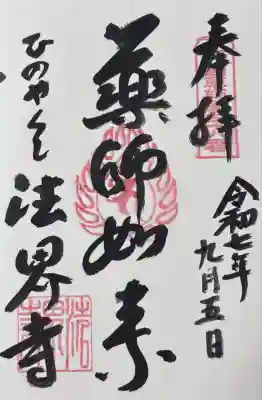 奉拝
令和七年
九月五日
薬師如来
ひのやくし
法界寺